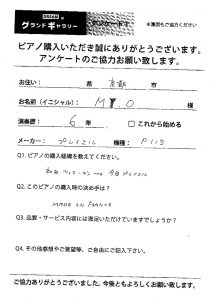 グランドギャラリー アンケート ※裏面もご協力ください
ピアノ購入いただき誠にありがとうございます。
アンケートのご協力お願い致します。
お住い: 県 京都 市
お名前(イニシャル): M O 様
演奏歴: 6 年 □ これから始める
メーカー: プレイエル 機種: P115
Q1. ピアノの購入経緯を教えてください。
Q2. このピアノの購入時の決め手は？
MADE IN FRANCE
Q3. 品質・サービス内容には満足いただけていますでしょうか？
Q4. その他感想やご要望等、ご自由にご記入下さい。
ご協力ありがとうございました。今後ともよろしくお願い致します。